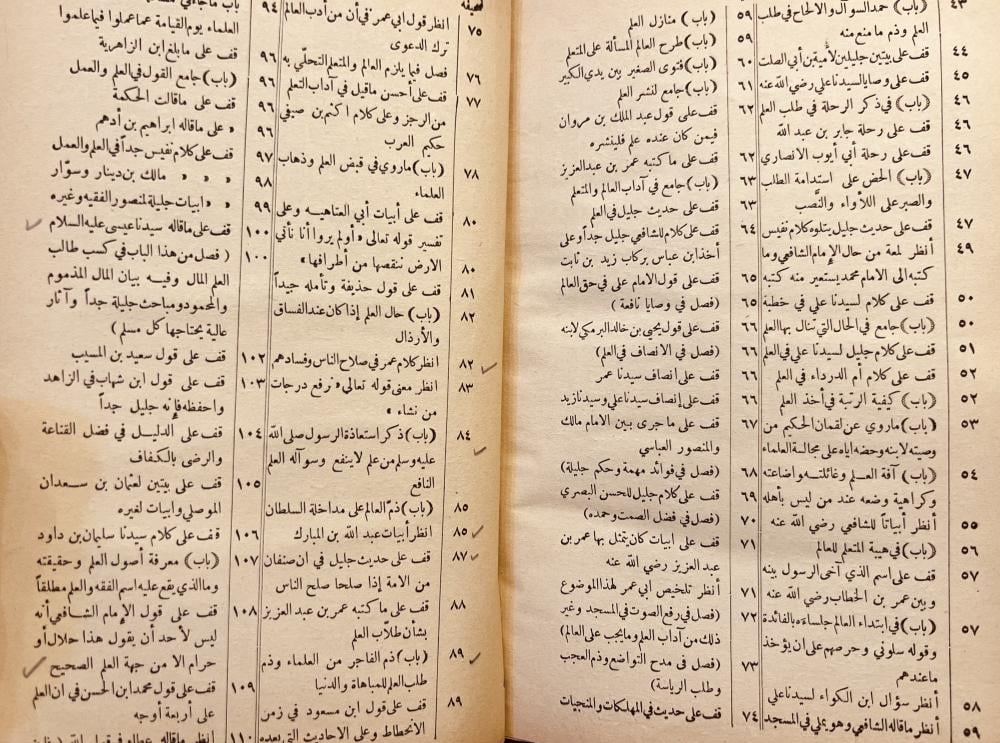 ٤٣ (باب) حمد السؤال والالحاح في طلب
العلم وذم ما منع منه
٤٤ قف على بيتين جليلين لأمية بن أبي الصلت
٤٥ قف على وصايا لسيدنا علي رضي الله عنه
٤٦ (باب) في ذكر الرحلة في طلب العلم
٤٦ قف على رحلة جابر بن عبد الله
٤٦ قف على رحلة أبي أيوب الانصاري
٤٧ (باب) الحض على استدامة الطلب
والصبر على اللأواء والنَّصب
٤٧ قف على حديث جليل يتلوه كلام نفيس
٤٩ أنظر لمعة من حال الإمام الشافعي وما
كتبه الى الامام محمد يستعير منه كتبه
٥٠ قف على كلام لسيدنا علي في خطبة
٥٠ (باب) جامع في الحال التي تنال بها العلم
٥١ قف على كلام جليل لسيدنا علي في العلم
٥٢ قف على كلام أم الدرداء في العلم
٥٢ (باب) كيفية الرتبة في أخذ العلم
٥٣ (باب) ماروي عن لقمان الحكيم من
وصيته لابنه وحضه اياه على مجالسة العلماء
٥٤ (باب) آفة العلم وغائلته واضاعته
وكراهية وضعه عند من ليس بأهله
٥٥ أنظر أبياتاً للشافعي رضي الله عنه
٥٦ (باب) في هيبة المتعلم للعالم
٥٧ قف على اسم الذي آخى الرسول بينه
وبين عمر بن الخطاب رضي الله عنه
٥٧ (باب) في ابتداء العالم جلساءه بالفائدة
وقوله سلوني وحرصهم على ان يؤخذ
ما عندهم
٥٨ أنظر سؤال ابن الكواء لسيدنا علي
٥٩ أنظر ماقاله الشافعي وهو يملي في المسجد
٥٩ (باب) منازل العلم
٥٩ (باب) طرح العالم المسألة على المتعلم
٦٠ (باب) فتوى الصغير بين يدي الكبير
٦١ (باب) جامع لنشر العلم
٦٢ قف على قول عبد الملك بن مروان
فيمن كان عنده علم فلينشره
٦٢ قف على ما كتبه عمر بن عبد العزيز
٦٣ (باب) جامع في آداب العالم والمتعلم
٦٣ قف على حديث جليل في العلم
٦٤ قف على كلام للشافعي جليل جدا وعلى
أخذ ابن عباس بركاب زيد بن ثابت
٦٥ قف على قول الامام علي في حق العالم
٦٥ (فصل في وصايا نافعة)
٦٦ قف على قول يحيى بن خالد البرمكي لابنه
٦٦ (فصل في الانصاف في العلم)
٦٦ قف على انصاف سيدنا عمر
٦٦ قف على إنصاف سيدنا علي وسيدنا زيد
٦٧ قف على ما جرى بين الامام مالك
والمنصور العباسي
٦٨ (فصل في فوائد مهمة وحكم جليلة)
٦٩ قف على كلام جليل للحسن البصري
٧٠ (فصل في فضل الصمت وحمده)
٧١ قف على ابيات كان يتمثل بها عمر بن
عبد العزيز رضي الله عنه
٧١ أنظر تلخيص أبي عمر لهذا الموضوع
٧٢ (فصل في رفع الصوت في المسجد وغير
ذلك من آداب العلم وما يجب على العالم)
٧٣ (فصل في مدح التواضع وذم العجب
وطلب الرياسة)
٧٤ قف على حديث في المهلكات والمنجيات
صحيفة
٧٥ انظر قول ابي عمر في أن من أدب العالم
ترك الدعوى
٧٦ فصل فيما يلزم العالم والمتعلم التحلّي به
٧٧ قف على أحسن ماقيل في آداب التعلم
من الرجز وعلى كلام اكثم بن صيفي
حكيم العرب
٧٨ (باب) ماروي في قبض العلم وذهاب
العلماء
٨٠ قف على أبيات أبي العتاهيه وعلى
تفسير قوله تعالى «أولم يروا أنا نأتي
الارض ننقصها من أطرافها»
٨٠ قف على قول حذيفة وتأمله جيداً
٨١
٨٢ (باب) حال العلم إذا كان عند الفساق
والأرذال
٨٢ انظر كلام عمر في صلاح الناس وفسادهم
٨٣ انظر معنى قوله تعالى «نرفع درجات
من نشاء»
٨٤ (باب) ذكر استعاذة الرسول صلى الله
عليه وسلم من علم لا ينفع وسوآله العلم
النافع
٨٥ (باب) ذمّ العالم على مداخلة السلطان
٨٥ أنظر أبيات عبد الله بن المبارك
٨٧ قف على حديث جليل في ان صنفان
من الامة إذا صلحا صلح الناس
٨٨ قف على ما كتبه عمر بن عبد العزيز
بشأن طلّاب العلم
٨٩ (باب) ذم الفاجر من العلماء وذم
طلب العلم للمباهاة والدنيا
٨٩ قف على قول ابن مسعود في زمن
الانحطاط وعلى الاحاديث التي بعده
٩٤ باب ما جاء في
العلماء يوم القيامة عما عملوا فيما علموا
٩٦ قف على ما بلغ ابن الزاهرية
٩٦ (باب) جامع القول في العلم والعمل
٩٦ قف على ماقالت الحكمة
٩٦ « على ماقاله ابراهيم بن أدهم
٩٧ قف على كلام نفيس جداً في العلم والعمل
٩٨ « « « مالك بن دينار وسوّار
٩٩ « « ابيات جليلة لمنصور الفقيه وغيره
١٠٠ قف على ماقاله سيدنا عيسى عليه السلام
١٠٠ (فصل من هذا الباب في كسب طالب
العلم المال وفيه بيان المال المذموم
والمحمود ومباحث جليلة جداً وآثار
عالية يحتاجها كل مسلم)
١٠٢ قف على قول سعيد بن المسيب
١٠٣ قف على قول ابن شهاب في الزاهد
واحفظه فإنه جليل جداً
١٠٤ قف على الدليل في فضل القناعة
والرضى بالكفاف
١٠٥ قف على بيتين لعثمان بن سعدان
الموصلي وابيات لغيره
١٠٦ قف على كلام سيدنا سليمان بن داود
١٠٧ (باب) معرفة أصول العلم وحقيقته
وماالذي يقع عليه اسم الفقه والعلم مطلقاً
١٠٨ قف على قول الإمام الشافعي أنه
ليس لأحد أن يقول هذا حلال أو
حرام الا من جهة العلم الصحيح
١٠٩ قف على قول محمد ابن الحسن في ان العلم
على أربعة أوجه
١١٠ انظر ماقاله عطاء في قول الله